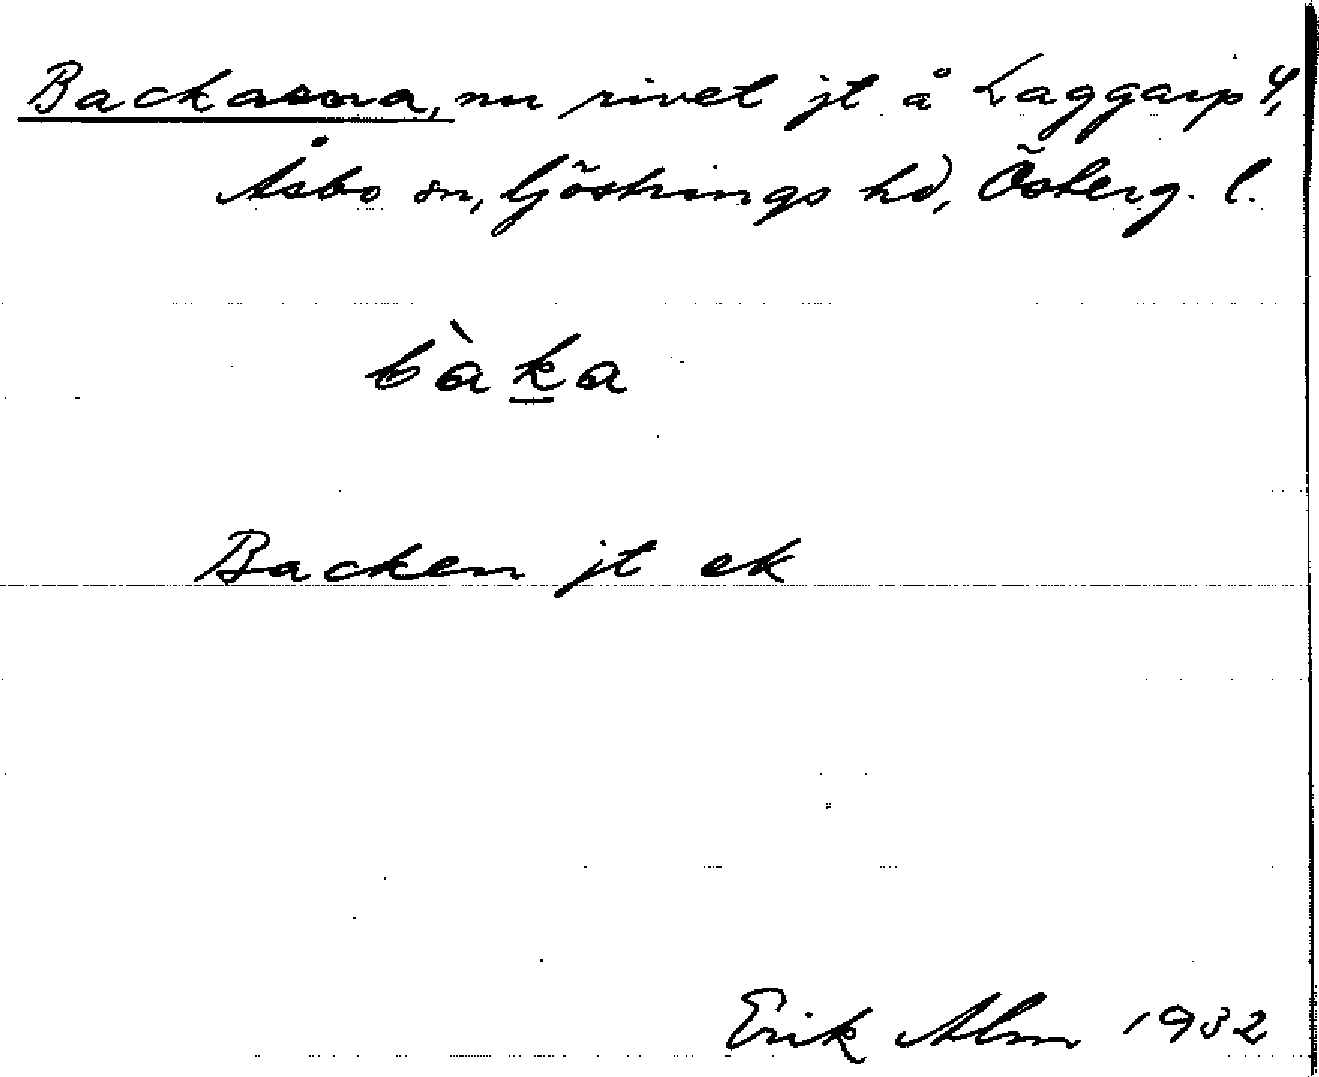 Backarna, nu rivet jt å Laggarp 4,
Åsbo sn, Göstrings hd, Österg. l.
bàka
Backen jt ek
Erik Alm 1932